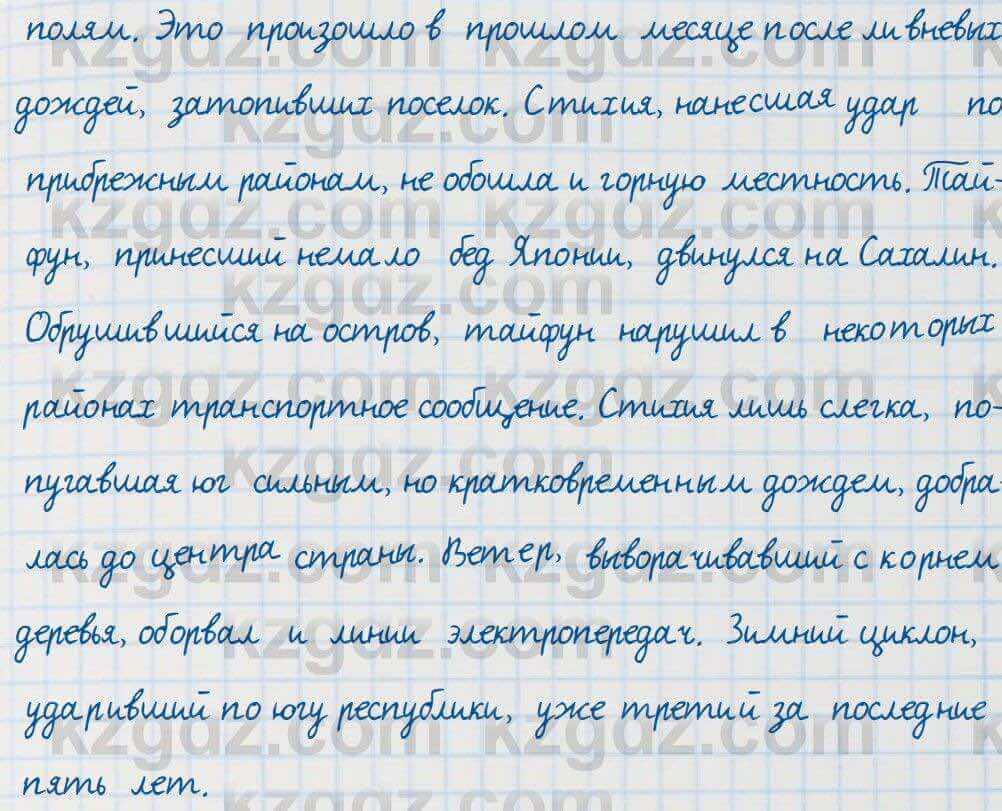 полям. Это произошло в прошлом месяце после ливневых
дождей, затопивших поселок. Стихия, нанесшая удар по
прибрежным районам, не обошла и горную местность. Тай-
фун, принесший немало бед Японии, двинулся на Сахалин.
Обрушившийся на остров, тайфун нарушил в некоторых
районах транспортное сообщение. Стихия лишь слегка, по-
пугавшая юг сильным, но кратковременным дождем, добра-
лась до центра страны. Ветер, выворачивавший с корнем
деревья, оборвал и линии электропередач. Зимний циклон,
ударивший по югу республики, уже третий за последние
пять лет.